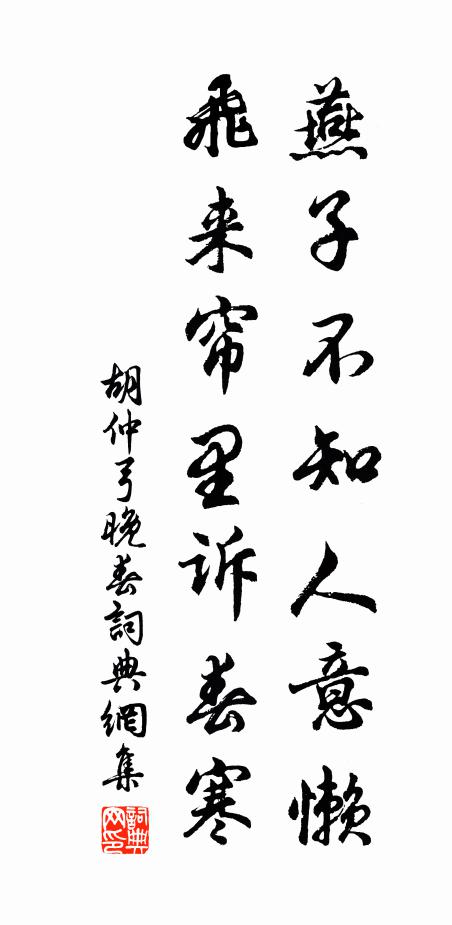 燕子不知人意懒
飞来帘里诉春寒
胡仲弓晚春詞典網集
詞典网印